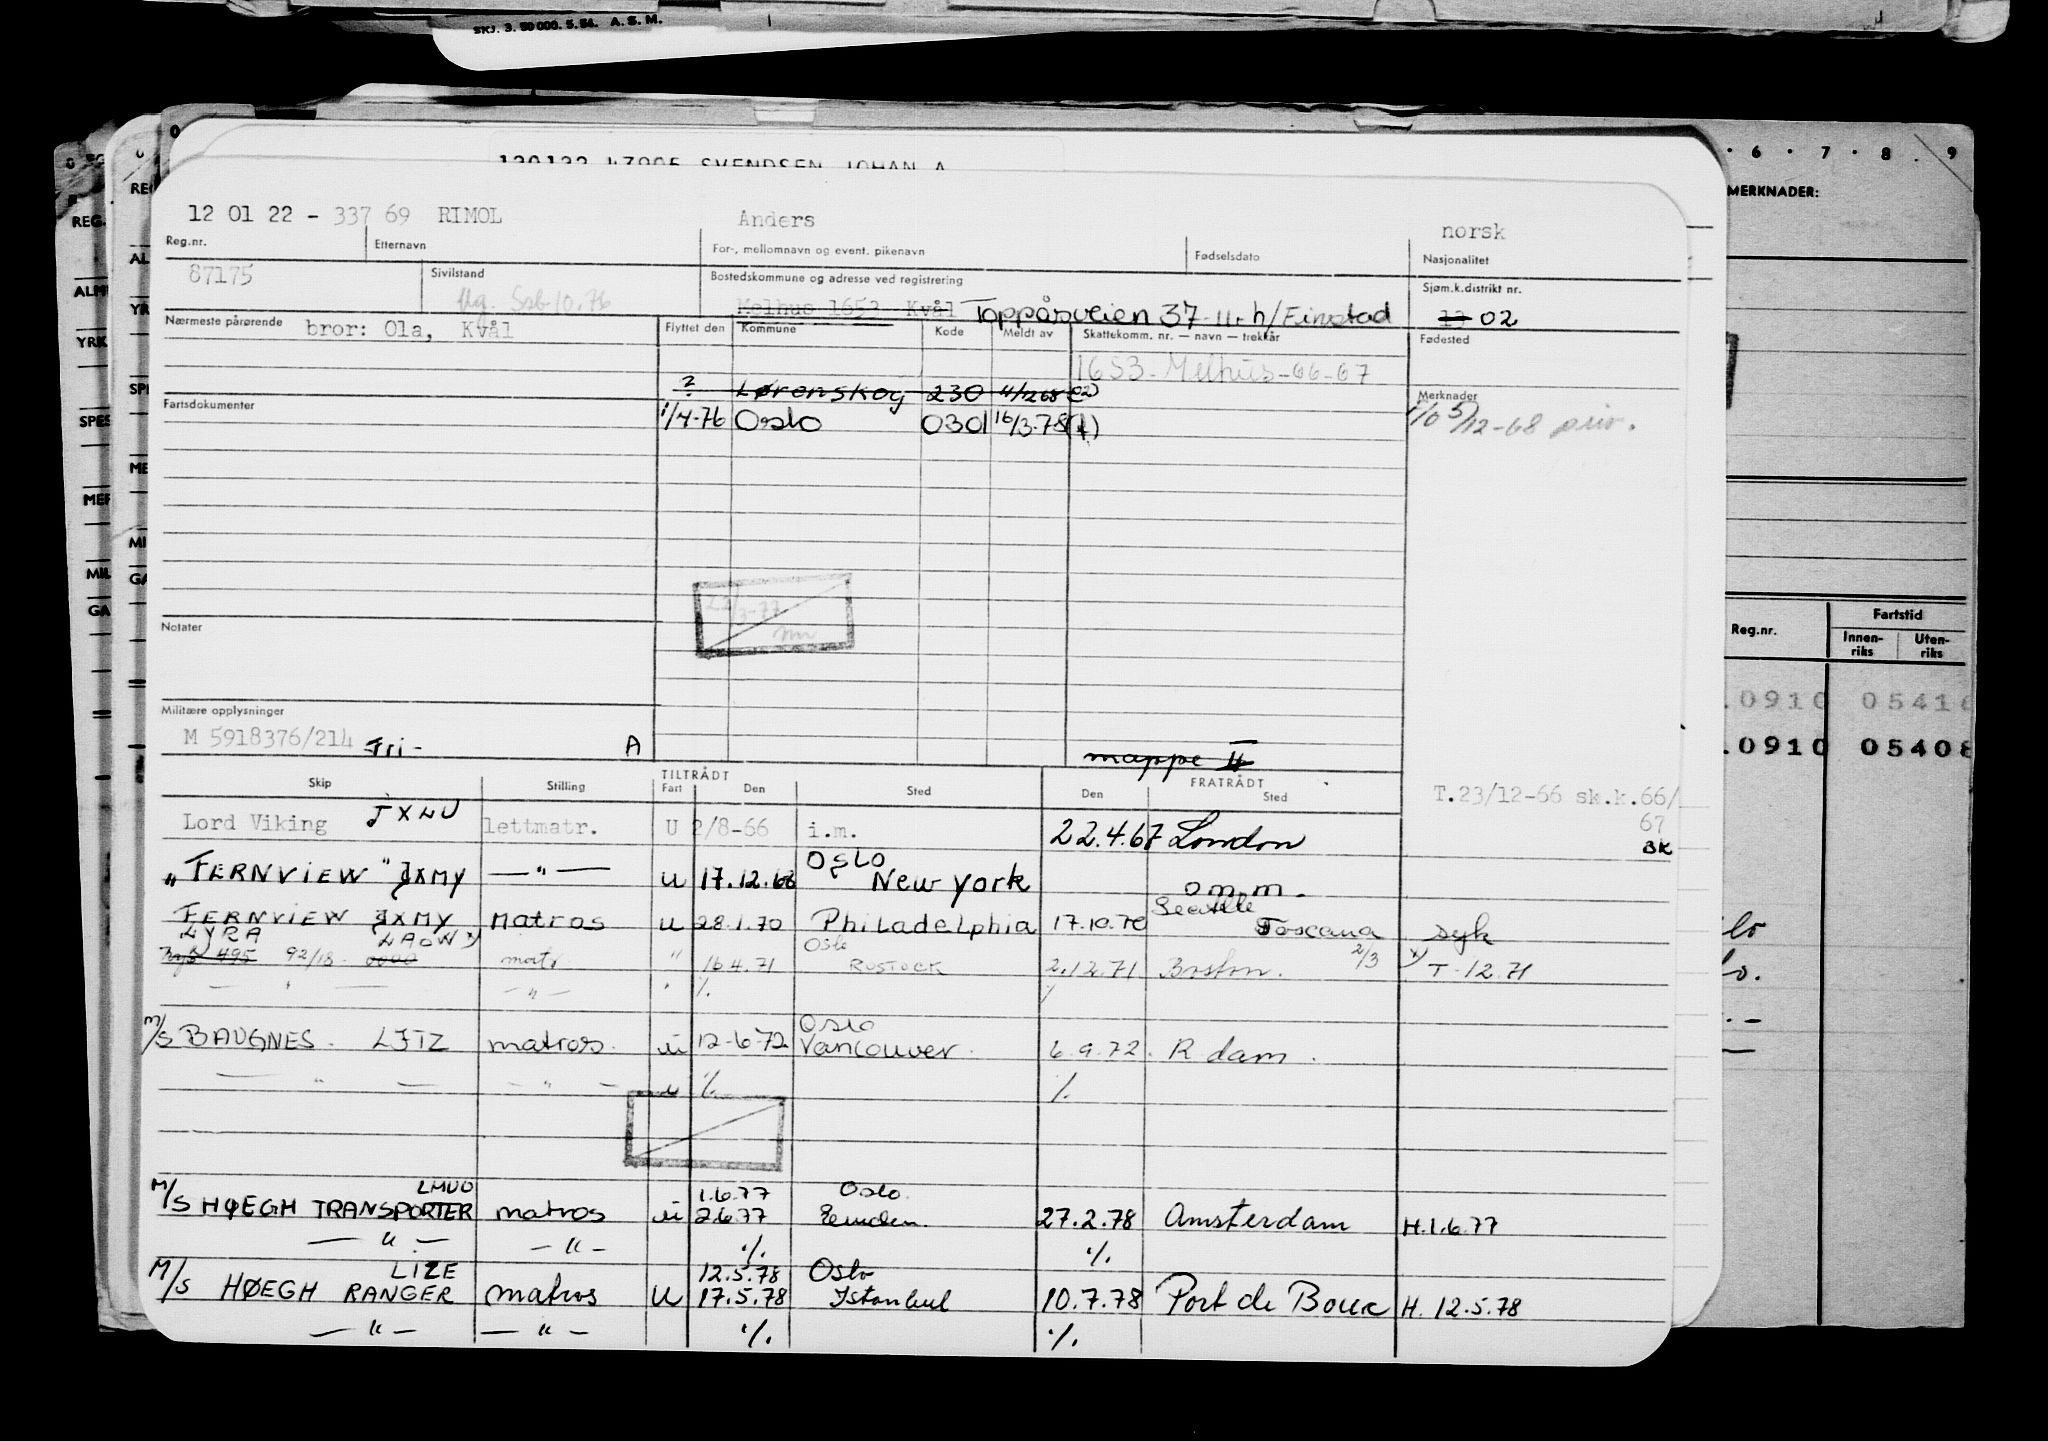 SKJ. 3. 50 000. 5. 54. A. S. M.
6 · 7 · 8 . 9
MERKNADER:
120122 47905 SVENDSEN JOHAN A
12 01 22 - 337 69 RIMOL Anders norsk
Reg.nr. Etternavn For-, mellomnavn og event. pikenavn Fødselsdato Nasjonalitet
87175 Sivilstand Bostedskommune og adresse ved registrering Sjøm.k.distrikt nr.
ug. Ssb 10.76 Melhus 1653 Kvål Toppåsveien 37 II. h/Einstad 02
Nærmeste pårørende bror: Ola, Kvål Flyttet den Kommune Kode Meldt av Skattekomm. nr. — navn — trekkår Fødested
1653 - Melhus - 66-67
? Lørenskog 230 4/12 68 Merknader
Fartsdokumenter 1/4-76 Oslo 0301 16/3-78 5/12-68 priv.
22/3-77
Notater
Militære opplysninger
M 5918376/214 Fri- A mappe II
Skip Stilling TILTRÅDT Fart Den Sted FRATRÅDT Den Sted
T.23/12-66 sk.k.66/
67
BK
Lord Viking JXLU lettmatr. U 2/8-66 i.m. 22.4.67 London
Oslo
"FERNVIEW" JXMY — " — u 17.12.68 New York omm.
FERNVIEW JXMY Matros u 28.1.70 Philadelphia 17.10.70 Seattle Toscana Dyk
LYRA LAOW x) Oslo
495 92/18 matr " 16.4.71 ROSTOCK 2.12.71 Boston. 2/3 x) T-12.71
— " — — " — " %
Oslo
M/S BAUGNES. LJIZ matros. u 12-6-72 Vancouver. 6.9.72. R dam.
— " — — " — u % %
LMUO 1.6.77 Oslo.
M/S HØEGH TRANSPORTER matros u 2.6.77 Emden. 27.2.78 Amsterdam H.1.6.77
— " — — " — % %
LIZE 12.5.78 Oslo
M/S HØEGH RANGER matros u 17.5.78 Istanbul 10.7.78 Port de Bouc H. 12.5.78
— " — — " — % %
Reg.nr. Fartstid
Innen-riks Uten-riks
.0910 05416
.0910 05408